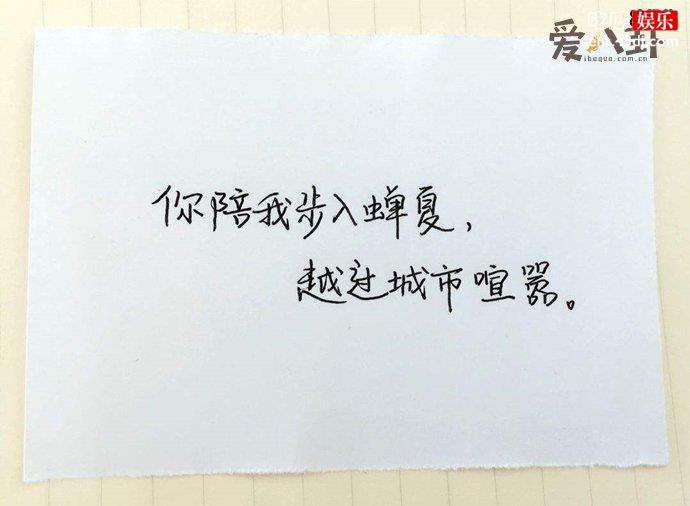 娱乐
爱八卦
ibagua.com.cn
你陪我步入蝉夏，
越过城市喧嚣。